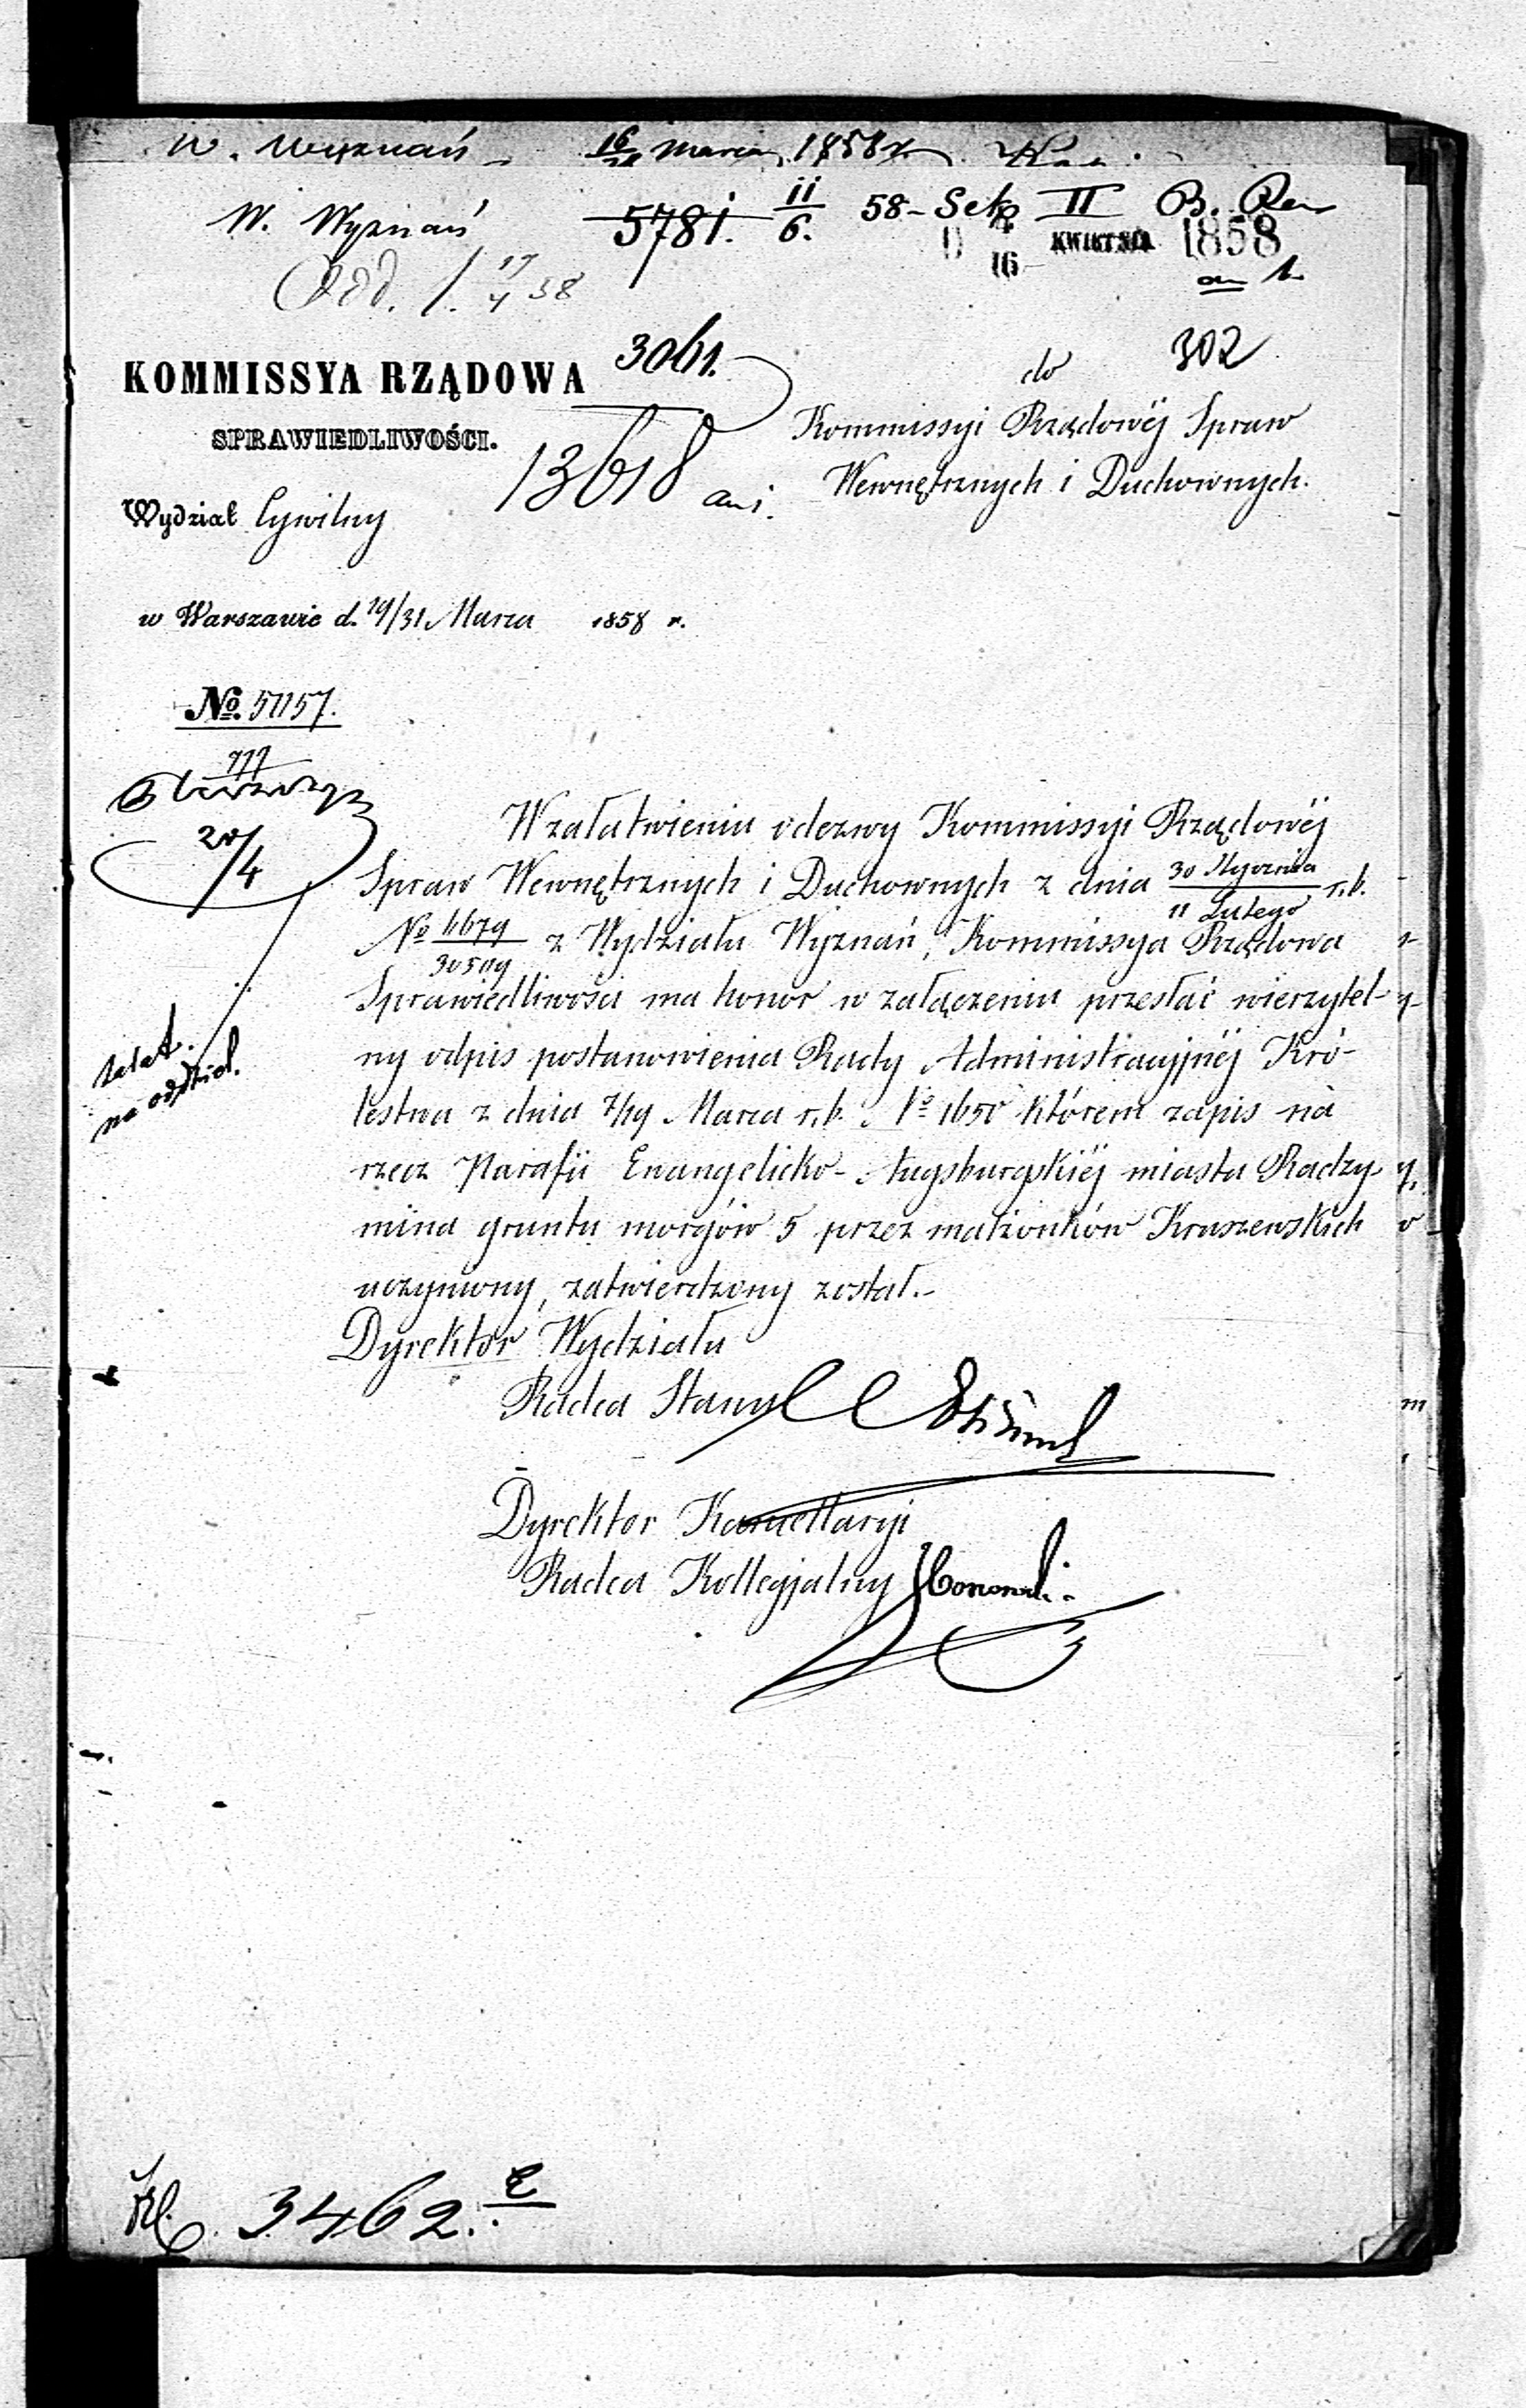 W. Wyznań 16/28 Marca 1858 r.
W. Wyznań 5781. 11/6. 58 - Sek II B.
4/16 KWIETNIA 1858
Odd. 1. 17/4 58
an 1
3061. do 302
KOMMISSYA RZĄDOWA
SPRAWIEDLIWOŚCI.
Kommissyi Rządowéj Spraw
Wewnętrznych i Duchownych.
13618 an 1.
Wydział Cywilny
w Warszawie d. 19/31 Marca 1858 r.
No. 5057.
20/4
Wzałatwieniu odezwy Kommissyi Rządowéj
Spraw Wewnętrznych i Duchownych z dnia 30 Stycznia/11 Lutego r. b.
No 6679/30509 z Wydziału Wyznań, Kommissya Rządowa
Sprawiedliwości ma honor w załączeniu przesłać wierzytel-
ny odpis postanowienia Rady Administracyjnéj Kró-
lestwa z dnia 7/19 Marca r. b. No 1650 którem zapis na
rzecz Parafii Ewangelicko-Augsburgskiéj miasta Radzy-
mina gruntu morgów 5 przez małżonków Kruszewskich
uczyniony, zatwierdzony został.-
Dyrektor Wydziału
Radca Stanu
Dyrektor Kancellaryi
Radca Kollegjalny
3462.